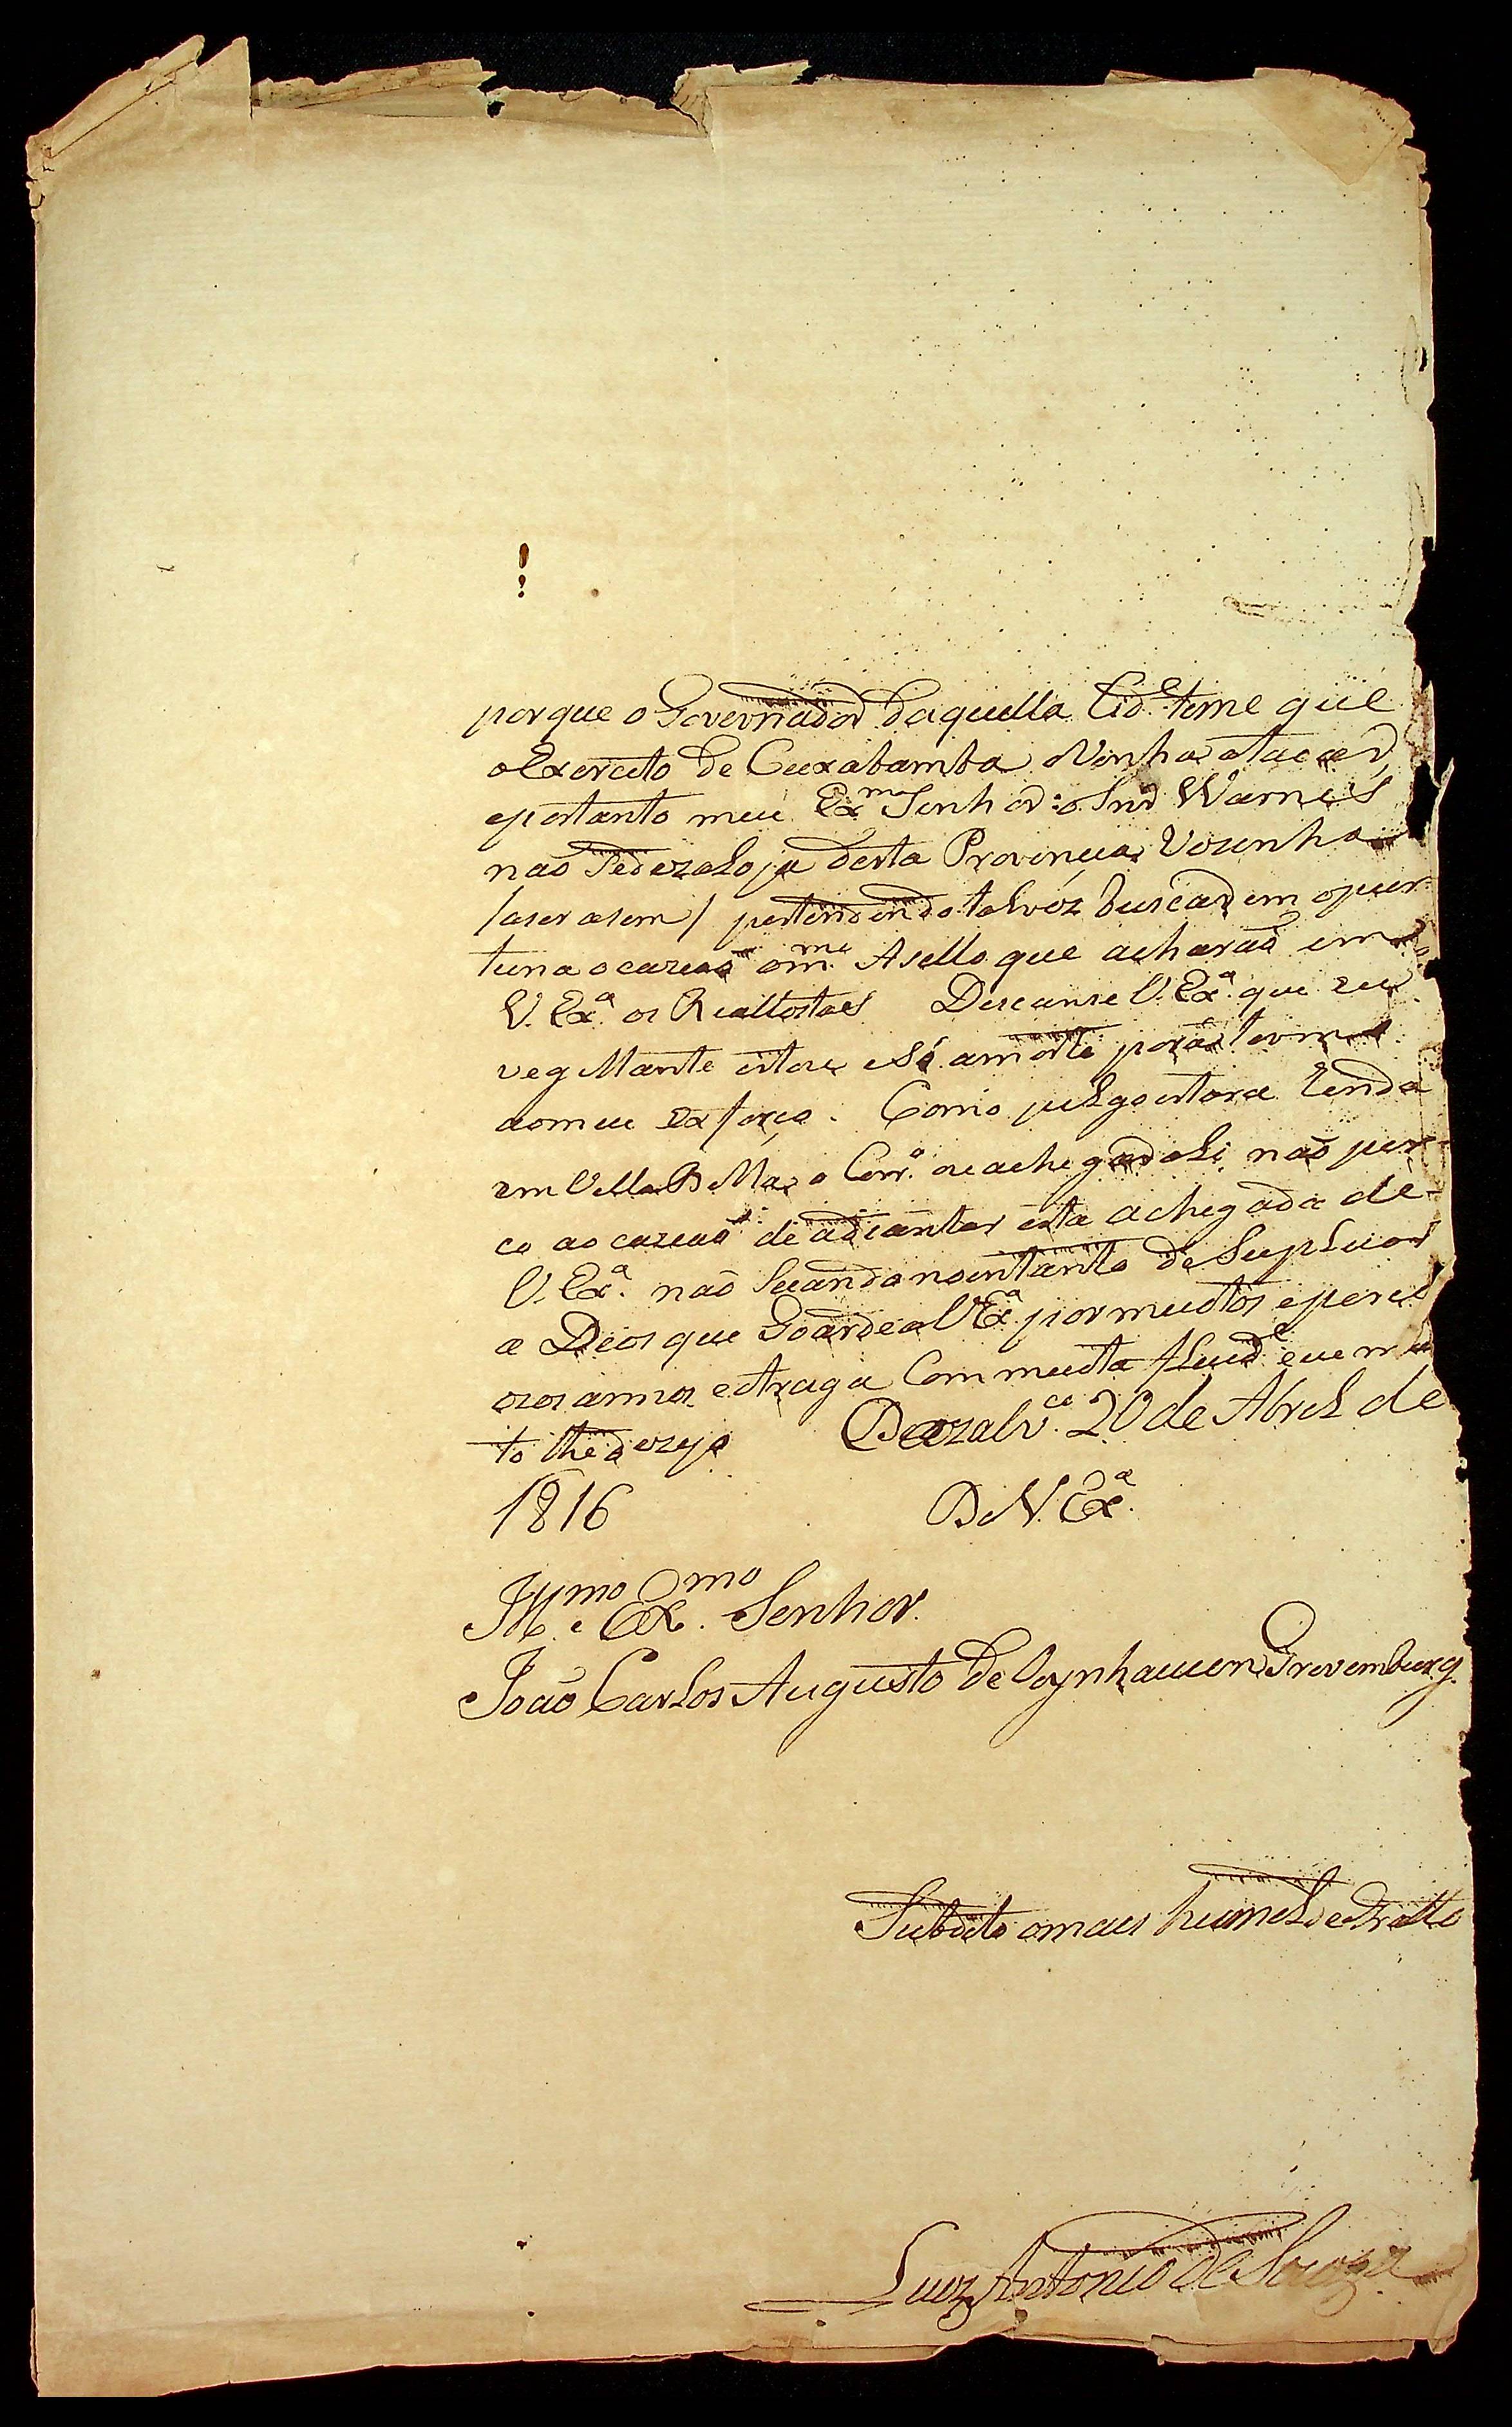 porque o Governador daquella Cid.e teme que
o Exercito de Cuxabamba o Venha atacar,
eportanto meu Ex.mo Senhor: o Snr Warnes
naõ sedezaloja desta Provincia Vezinha
/aser asem/ pertendendo talvez buscar em opur
tuna ocaziaõ omᵐᵒ Azillo que acharaõ em
V. Ex.a os Reallistas Descanse V. Ex.a que eu
vegillante estou e Só amorte porá termo
aomeu exforço. Como julgo estará Tenda
em Villa Bella, o Corr.o aeachegar ali, naõ per
co ao caziaõ de adeantar esta achegada de
V. Ex.a naõ Secando noentanto de Suplicar
a Deos que Goarde a V. Ex.a por muitos eperci
ozos annos eotraga Com muita fellecid.e euem
to lhe dezejo Cazalv.co 20 de Abril de
1816 De V. Ex.a
Ill.mo Ex.mo Senhor
Joaõ Carlos Augusto de Oeynhauzen Grevemburg.
Subdito omais humilde e
Luiz Antonio de Souza